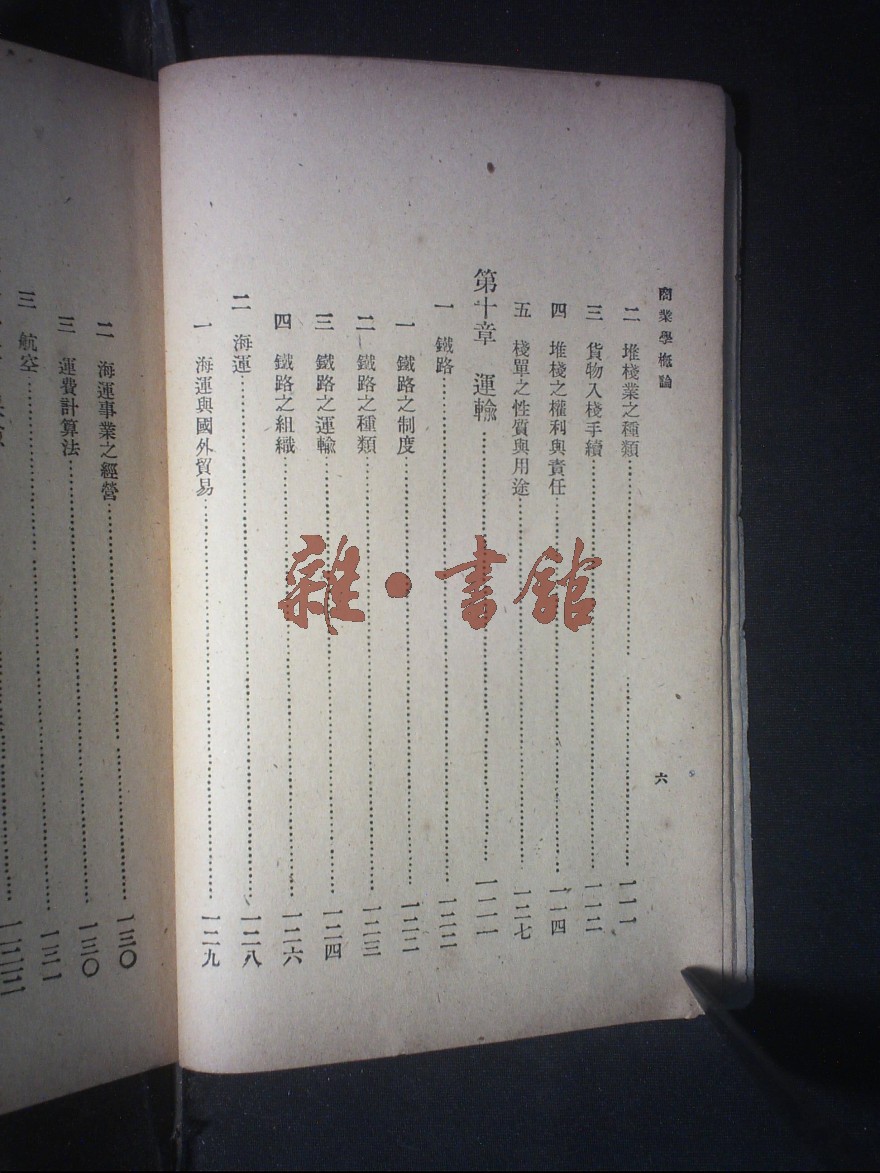 商業學概論 六
二 堆棧業之種類……一一一
三 貨物入棧手續……一一二
四 堆棧之權利與責任……一一四
五 棧單之性質與用途……一二七
第十章 運輸……一二一
一 鐵路……一二二
一 鐵路之制度……一二二
二 鐵路之種類……一二三
三 鐵路之運輸……一二四
四 鐵路之組織……一二六
二 海運……一二八
一 海運與國外貿易……一二九
二 海運事業之經營……一三〇
三 運費計算法……一三〇
三 航空……一三一
雜·書館